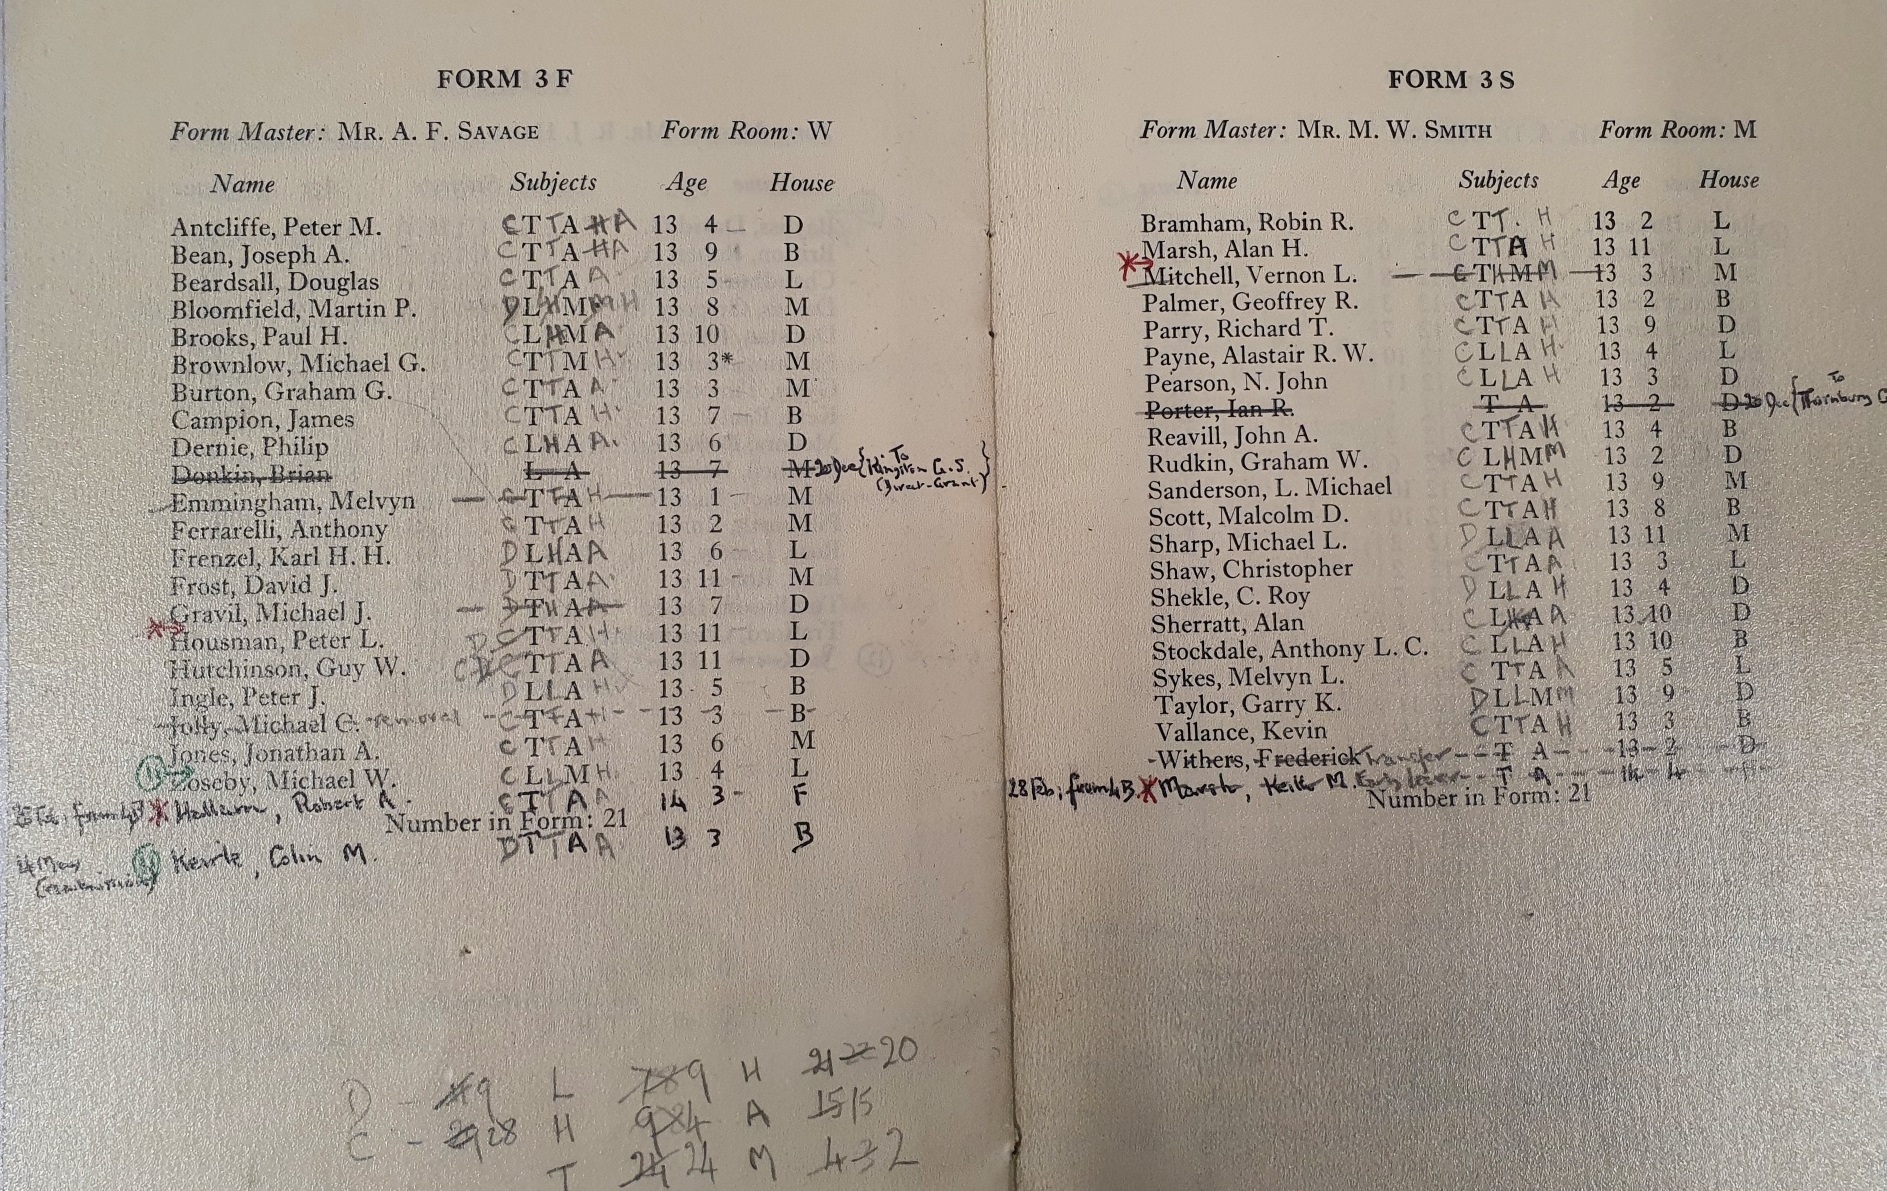 FORM 3 F
Form Master: MR. A. F. SAVAGE Form Room: W
Name Subjects Age House
Antcliffe, Peter M. C T T A H A 13 4 D
Bean, Joseph A. C T T A H A 13 9 B
Beardsall, Douglas C T T A A 13 5 L
Bloomfield, Martin P. D L H M M H 13 8 M
Brooks, Paul H. C L H M A 13 10 D
Brownlow, Michael G. C T T M H 13 3* M
Burton, Graham G. C T T A A 13 3 M
Campion, James C T T A H 13 7 B
Dernie, Philip C L H A A 13 6 D
Donkin, Brian L A 13 7 M 20 Dec { To Kingston G.S. (Direct-Grant) }
Emmingham, Melvyn C T T A H 13 1 M
Ferrarelli, Anthony C T T A H 13 2 M
Frenzel, Karl H. H. D L H A A 13 6 L
Frost, David J. D T T A A 13 11 M
Gravil, Michael J. D T H A A 13 7 D
Housman, Peter L. D C T T A H 13 11 L
Hutchinson, Guy W. C T T A A 13 11 D
Ingle, Peter J. D L L A H 13 5 B
Jolly, Michael C. removal C T T A H 13 3 B
Jones, Jonathan A. C T T A H 13 6 M
Loseby, Michael W. C L L M H 13 4 L
from 4B * Hallam, Robert A. C T T A A 14 3 F
Number in Form: 21
4 May Colin M. D T T A A 13 3 B
D - 9 L 9 H 21 22 20
C - 29 28 H 9 8 4 A 15 15
T 24 24 M 4 3 2
FORM 3 S
Form Master: MR. M. W. SMITH Form Room: M
Name Subjects Age House
Bramham, Robin R. C T T . H 13 2 L
Marsh, Alan H. C T T A H 13 11 L
Mitchell, Vernon L. C T H M M 13 3 M
Palmer, Geoffrey R. C T T A H 13 2 B
Parry, Richard T. C T T A H 13 9 D
Payne, Alastair R. W. C L L A H 13 4 L
Pearson, N. John C L L A H 13 3 D
Porter, Ian R. T A 13 2 D 20 Dec { To Thornbury G
Reavill, John A. C T T A H 13 4 B
Rudkin, Graham W. C L H M M 13 2 D
Sanderson, L. Michael C T T A H 13 9 M
Scott, Malcolm D. C T T A H 13 8 B
Sharp, Michael L. D L L A A 13 11 M
Shaw, Christopher C T T A A 13 3 L
Shekle, C. Roy D L L A H 13 4 D
Sherratt, Alan C L H A A 13 10 D
Stockdale, Anthony L. C. C L L A H 13 10 B
Sykes, Melvyn L. C T T A A 13 5 L
Taylor, Garry K. D L L M M 13 9 D
Vallance, Kevin C T T A H 13 3 B
Withers, Frederick Transfer T A 13 2 D
28 Feb; from 4B. * Marsh, Keith M. Early leaver T A 14 4
Number in Form: 21